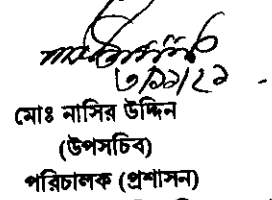 ৩/১১/২১
মোঃ নাসির উদ্দিন
(উপসচিব)
পরিচালক (প্রশাসন)